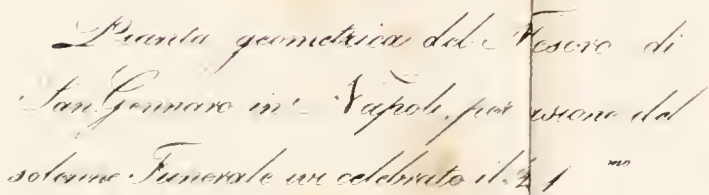 Pianta geometrica del Tesoro di
San Gennaro in Napoli, per usione del
solenne Funerale ivi celebrato il 21 mo